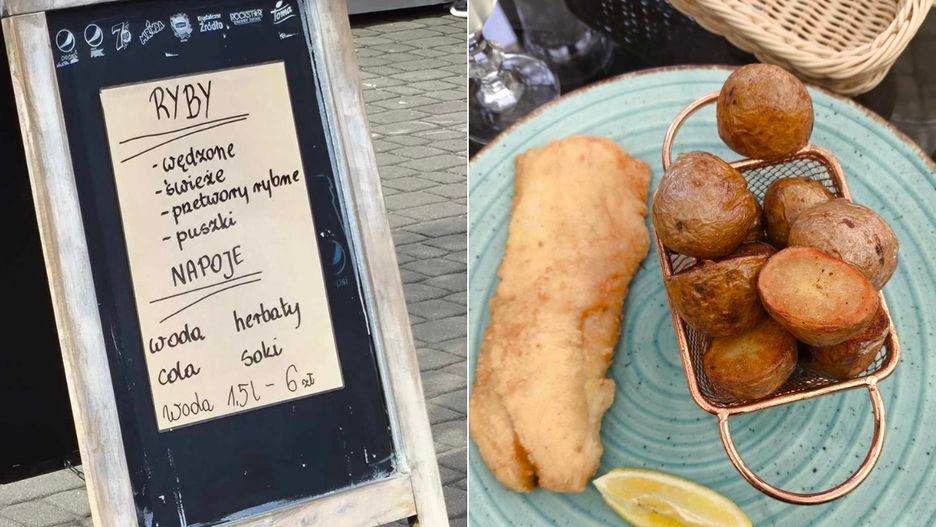 Krystaliczne
Źródło
ROCKSTAR
Toma
RYBY
- wędzone
- świeże
- przetwory rybne
- puszki
NAPOJE
woda herbaty
cola soki
Woda 1,5l - 6 zł